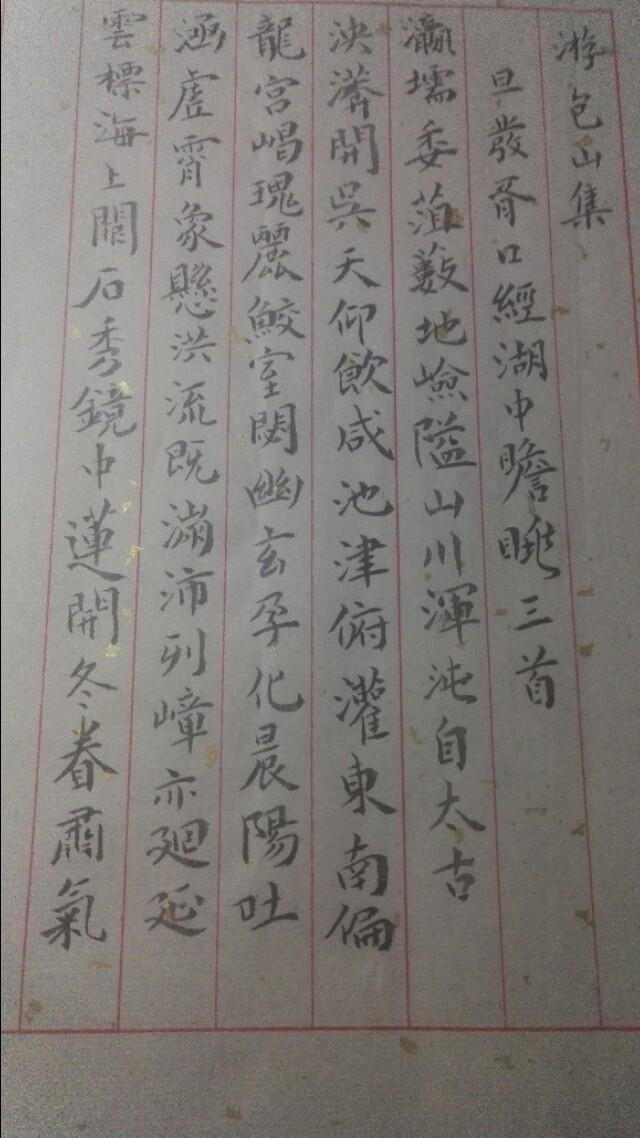 游包山集
旦發胥口經湖中瞻眺三首
瀛壖委菹藪地嶮隘山川渾沌自太古
泱漭開吳天仰飲咸池津俯灌東南偏
龍宮嵑瑰麗鮫室閟幽玄孕化晨陽吐
涵虛霄象懸洪流既滿沛列嶂亦廻延
雲標海上闕石秀鏡中蓮開冬眷肅氣